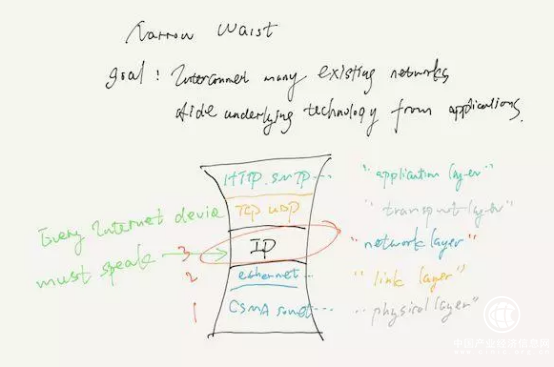 Narrow Waist
goal: Interconnect many existing networks
Hide underlying technology from applications.
HTTP. SMTP... "application layer"
TCP UDP "transport layer"
Every Internet device
must speak
3 IP "network layer"
2 ethernet... "link layer"
1 CSMA sonet... "physical layer"
中国产业经济信息网